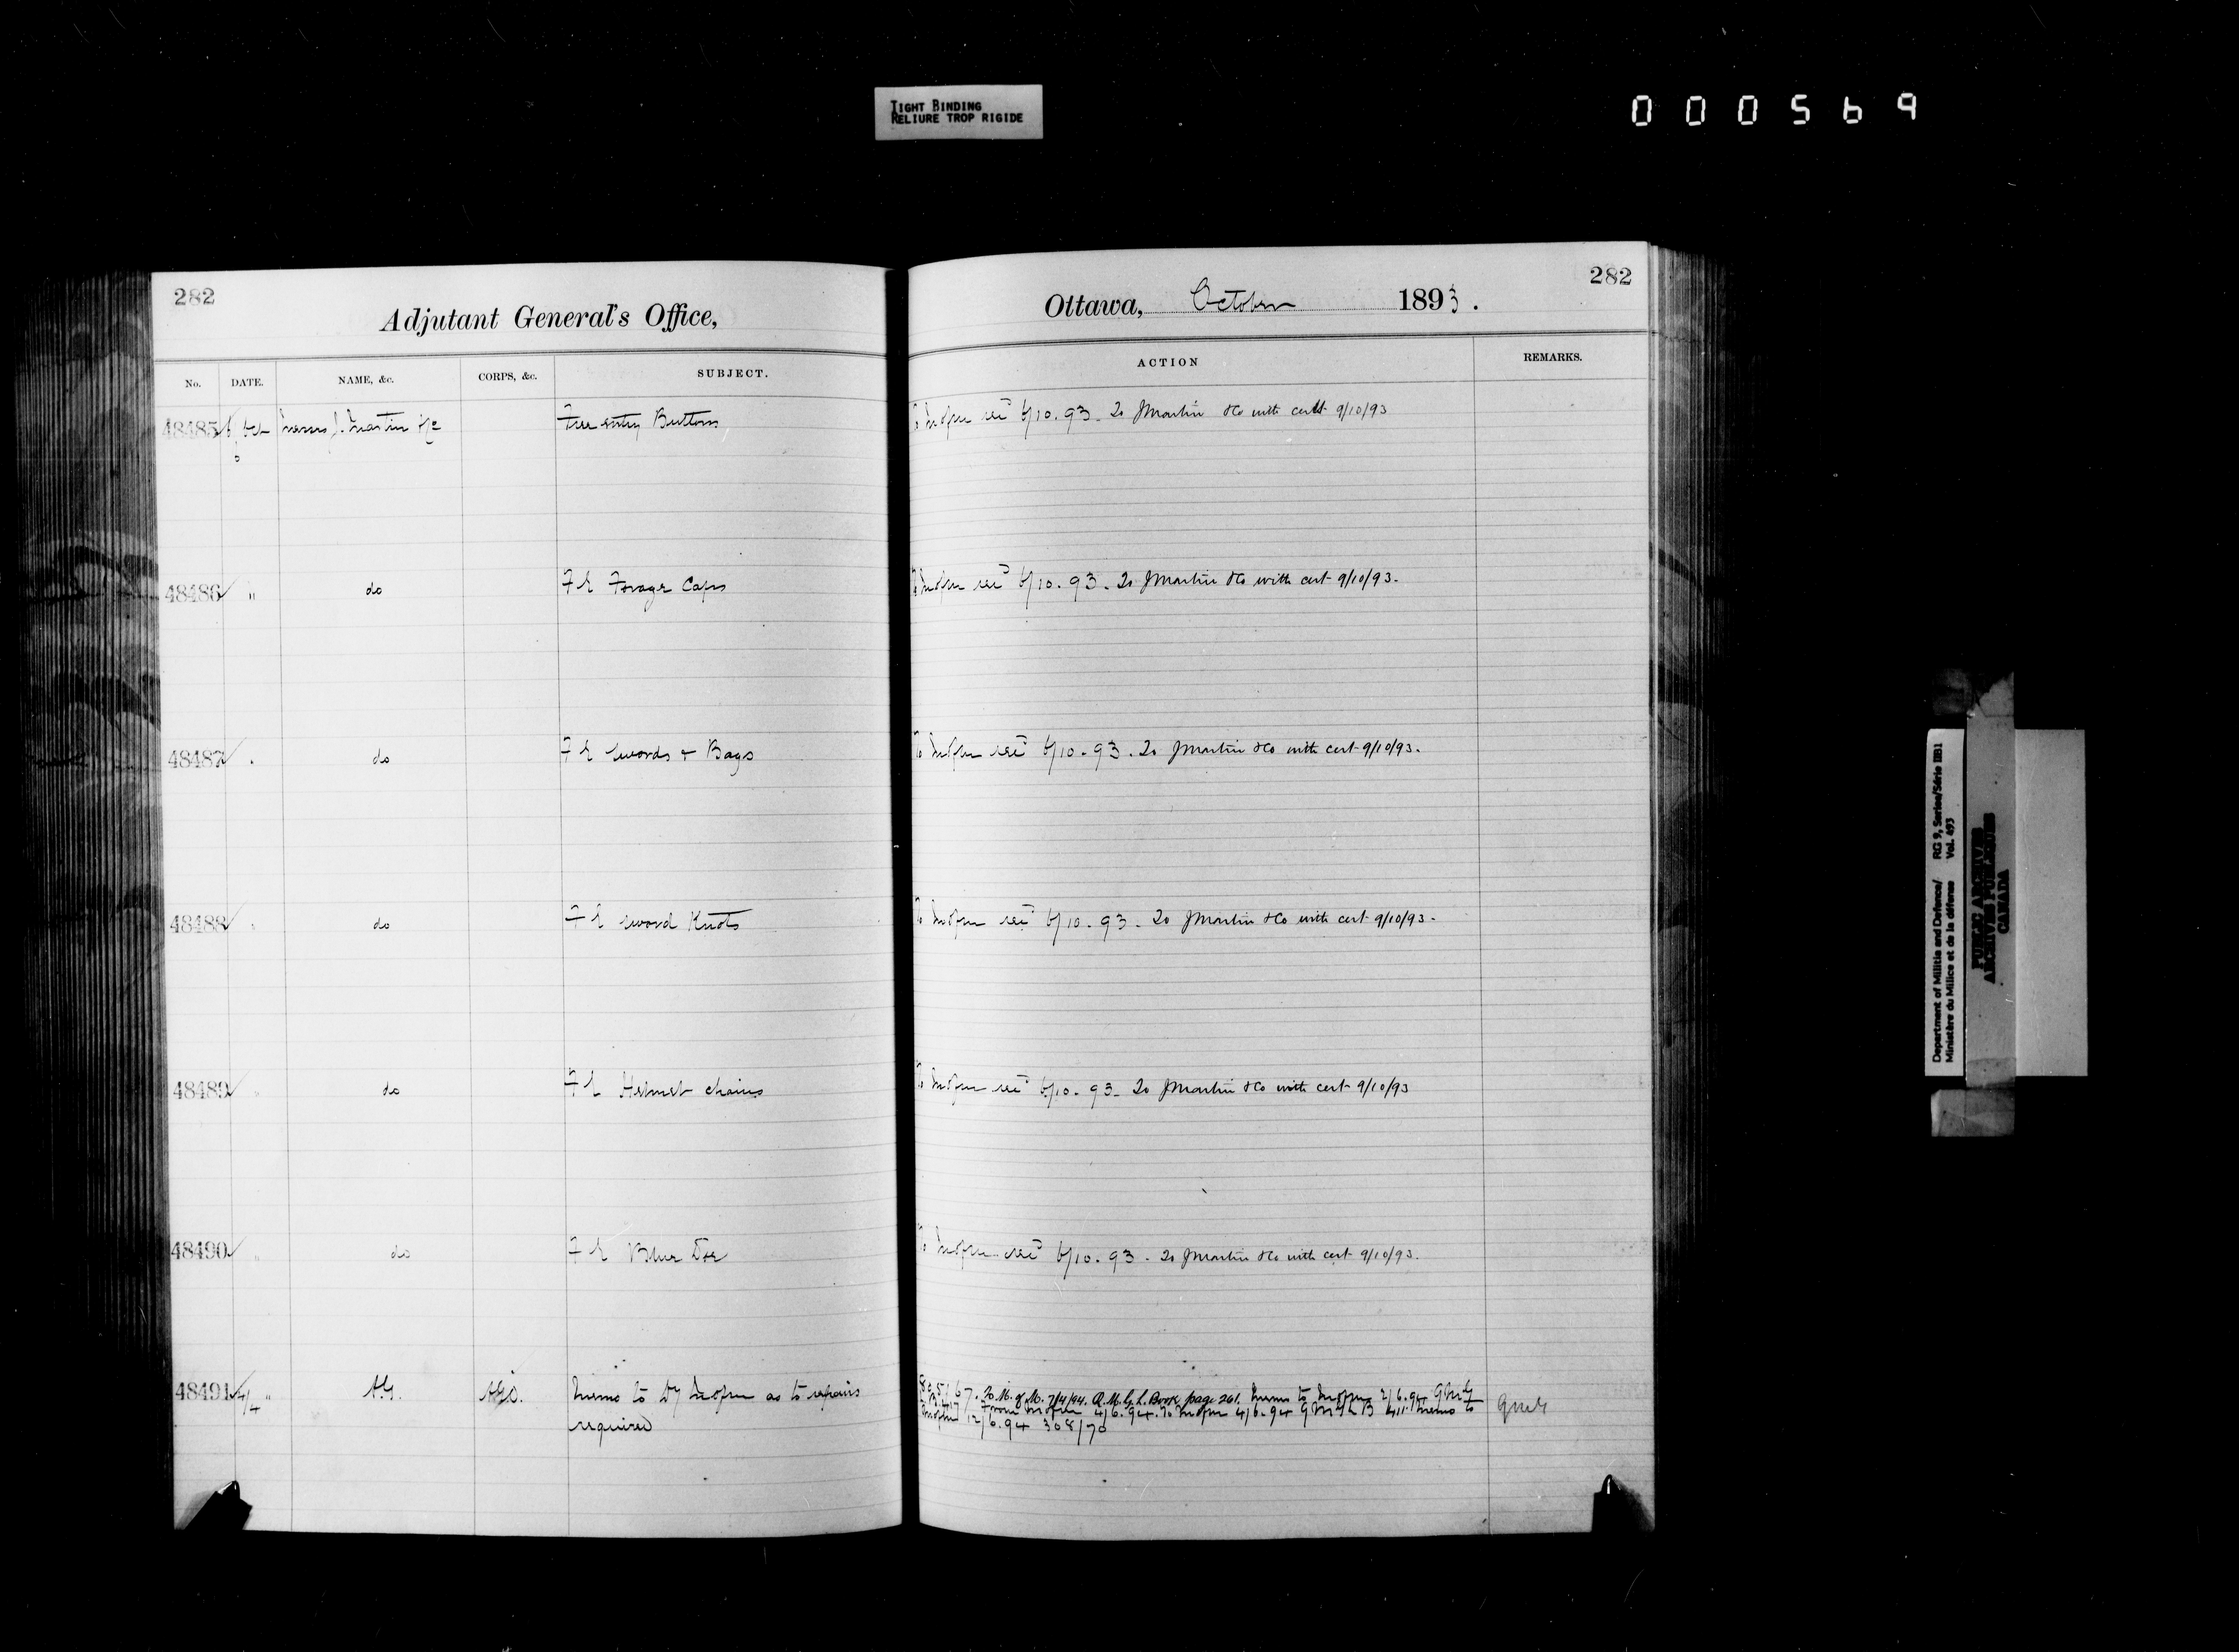 TIGHT BINDING
RELIURE TROP RIGIDE
000569
282
Adjutant General's Office,
No. DATE. NAME, &c. CORPS, &c. SUBJECT.
48485 6 Oct Messrs J. Martin & Co Free entry Buttons
48486 " do F E Forage Caps
48487 " do F E Swords & Bags
48488 " do F E Sword Knots
48489 " do F E Helmet chains
48490 " do F E Blue
48491 4/4 " A.G. Memo to as to repairs
required
282
Ottawa, October 1893.
ACTION REMARKS.
To 6/10.93. To J Martin & Co with cert 9/10/93
To 6/10.93. To J Martin & Co with cert 9/10/93.
To 6/10.93. To J Martin & Co with cert 9/10/93.
To 6/10.93. To J Martin & Co with cert 9/10/93.
To 6/10.93. To J Martin & Co with cert 9/10/93
To 6/10.93. To J Martin & Co with cert 9/10/93.
To M. of M. 7/4/94. Q.M.G.L. Book page 261. Memo to 2/6.94
From 4/6.94. To 4/6.94 Memo to
12/6.94 308/70
Department of Militia and Defence/ RG 9, Series/Série IIB1
Ministère du Milice et de la défense Vol. 493
PUBLIC ARCHIVES
ARCHIVES PUBLIQUES
CANADA